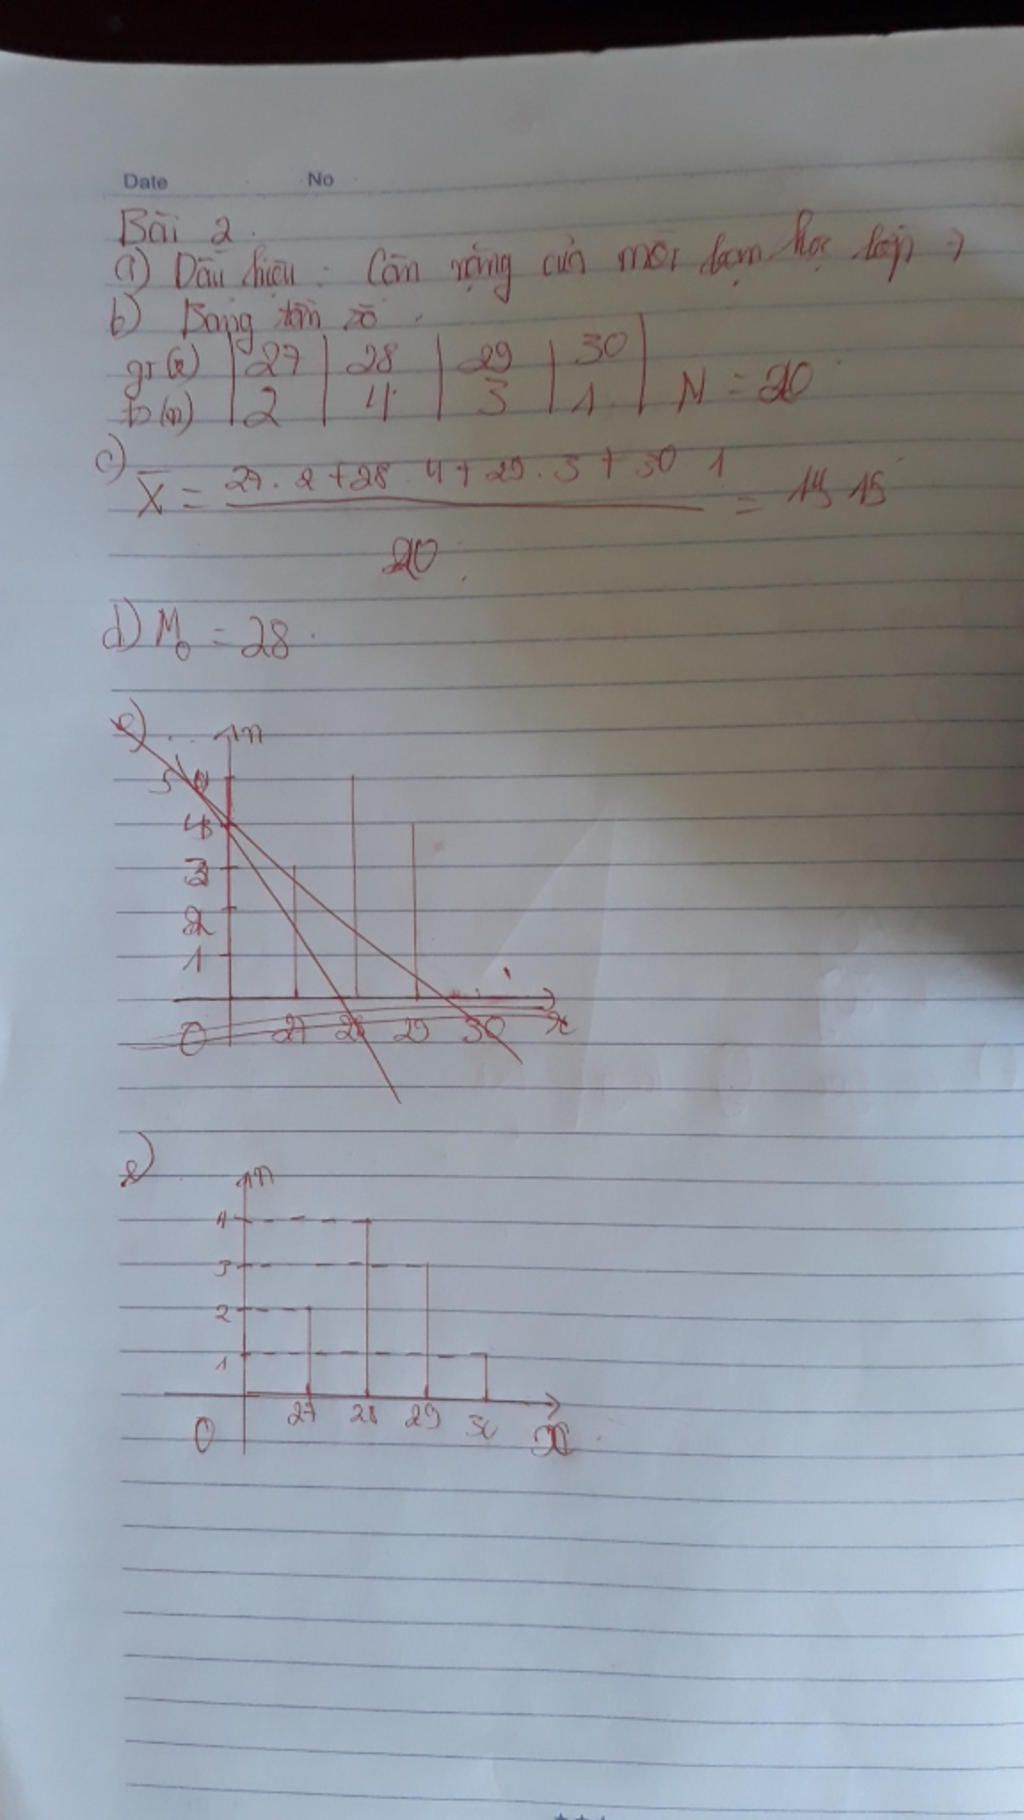 Date No
Bài 2.
a) Dấu hiệu: Cân nặng của mỗi bạn học lớp 7
b) Bảng tần số.
gt(x) | 27 | 28 | 29 | 30 |
ts(n) | 2 | 4 | 3 | 1 | N = 20
c)
27.2+28.4+29.3+30 1
X̄ = = 14,15
20
d) M₀ = 28.
e) n
5
4
3
2
1
O 27 28 29 30 x
e)
n
4
3
2
1
27 28 29 30
O x